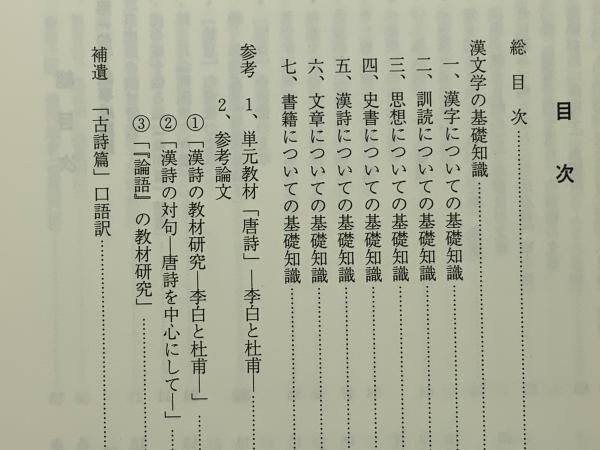 目次
総目次……………………
漢文学の基礎知識……………………
一、漢字についての基礎知識……………………
二、訓読についての基礎知識……………………
三、思想についての基礎知識……………………
四、史書についての基礎知識……………………
五、漢詩についての基礎知識……………………
六、文章についての基礎知識……………………
七、書籍についての基礎知識……………………
参考 1、単元教材「唐詩」―李白と杜甫―……………
2、参考論文
①「漢詩の教材研究―李白と杜甫―」………
②「漢詩の対句―唐詩を中心にして―」……
③「『論語』の教材研究」……………………
補遺 「古詩篇」口語訳……………………